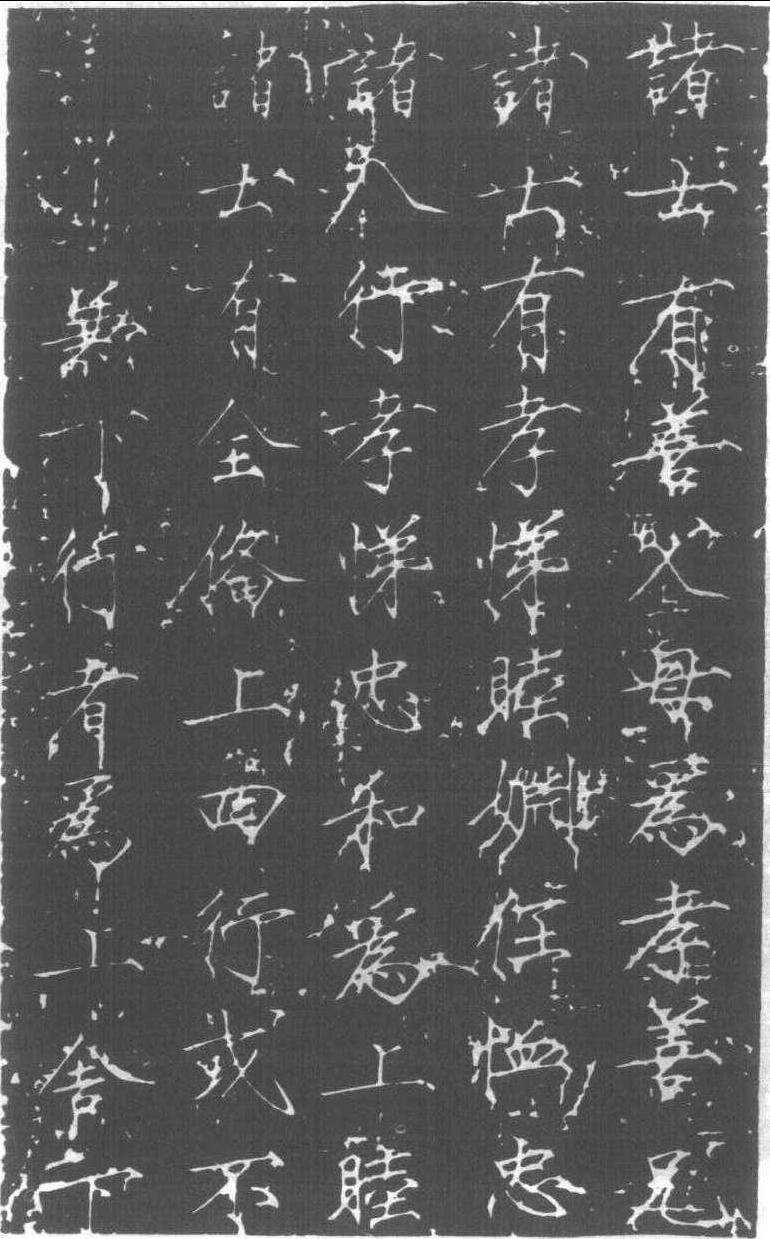 諸士有善父母爲孝善兄
諸士有孝悌睦婣任恤忠
諸八行孝悌忠和爲上睦
諸士有全備上四行或不
兼下行者爲上舍下